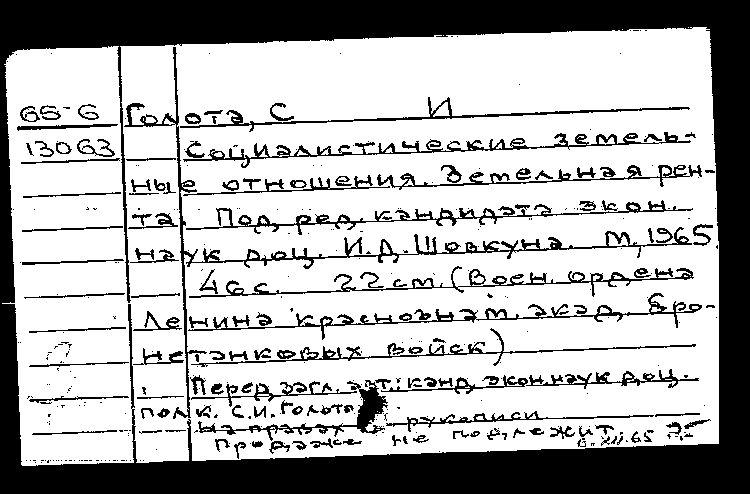 65-6 Голота, С И
13063 Социалистические земель-
ные отношения. Земельная рен-
та. Под ред. кандидата экон.
наук доц. И.Д. Шовкуна. М, 1965.
46с. 22 см. (Воен. ордена
Ленина краснознам. акад. бро-
нетанковых войск)
Перед загл. авт.: канд. экон. наук доц.
полк. С.И. Голота
На правах рукописи
Продаже не подлежит. 6.XII.65